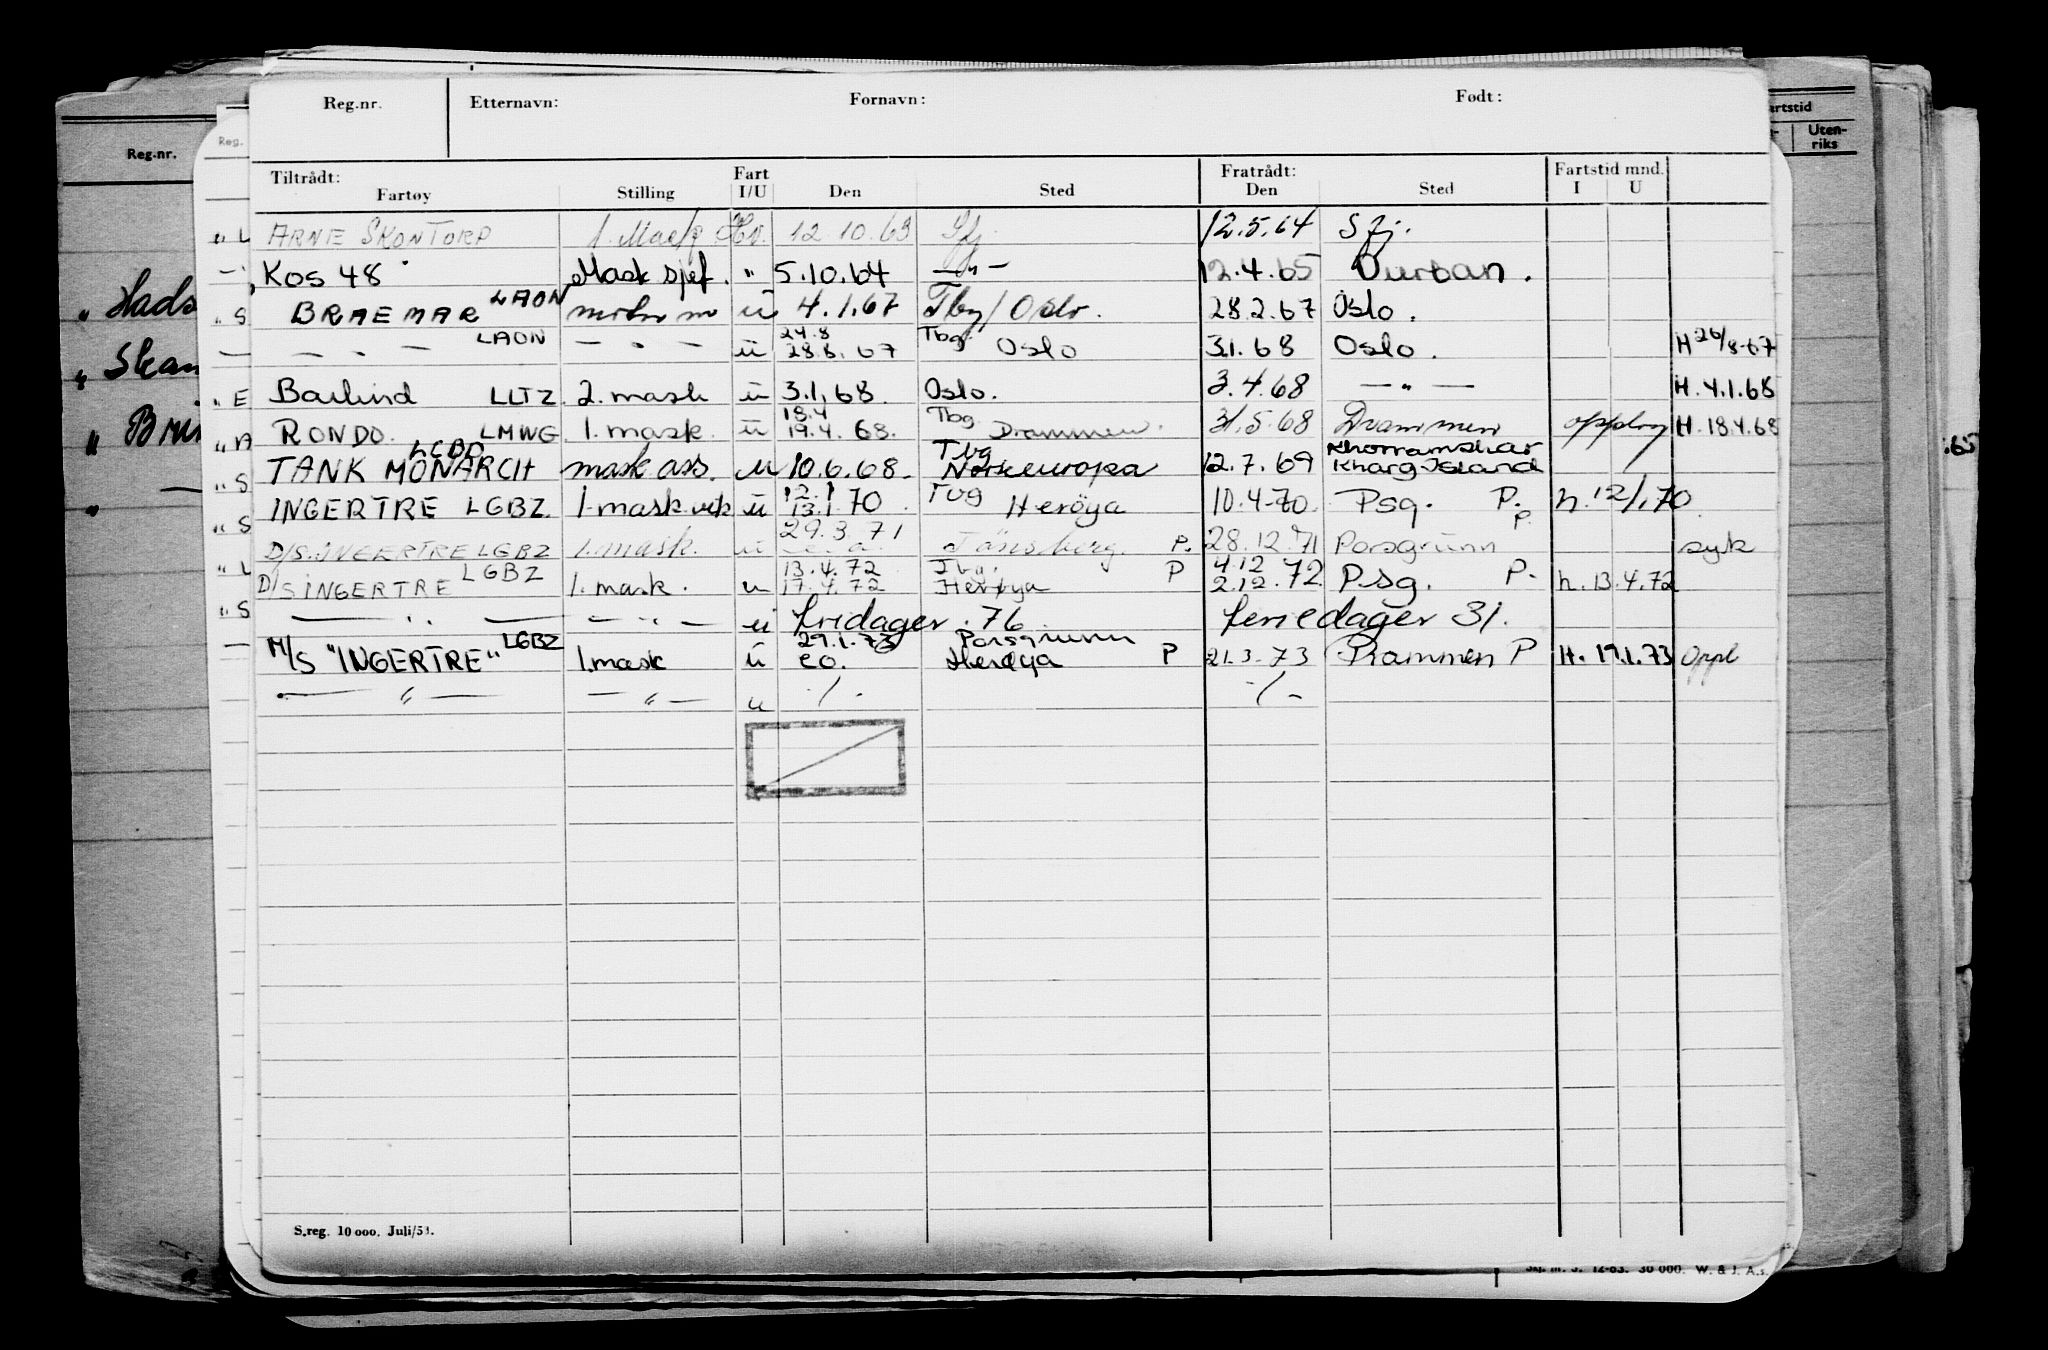 Reg.nr. Etternavn: Fornavn: Født:
Tiltrådt: Fart Fratrådt: Fartstid mnd.
Fartøy Stilling I/U Den Sted Den Sted I U
ARNE SKONTORP 1. Mask Hv. 12.10.63 Sfj. 12.5.64 Sfj.
Kos 48 Mask sjef. " 5.10.64 — " — 12.4.65 Durban.
BRAEMAR LAON u 4.1.67 Tbg/Oslo. 28.2.67 Oslo.
— " — LAON — " — u 24.8 28.8.67 Tbg. Oslo 3.1.68 Oslo. H 26/8-67
Barlind LLTZ 2. mask u 3.1.68. Oslo. 3.4.68 — " — H. 4.1.68
RONDO. LMWG 1. mask. u 18.4 19.4.68. Tbg. Drammen. 31.5.68 Drammen opplag H. 18.4.68
TANK MONARCH LCBD mask ass. u 10.6.68. Tvg Nordeuropa 12.7.69 Khorramshar Kharg Island
INGERTRE LGBZ. 1. mask. vik u 12.1 13.1.70 Tvg Herøya 10.4-70. Psg. P. P. h. 12/1.70
D/S. INGERTRE LGBZ 1. mask. u 29.3.71 Tönsberg. P. 28.12.71 Porsgrunn syk
D/S INGERTRE LGBZ 1. mask. u 13.4.72 17.4.72 Tbg. Herøya P 4.12 2.12.72 P.sg. P. h. 13.4.72
— " — — " — u fridager. 76 feriedager 31.
M/S "INGERTRE" LGBZ 1. mask u 29.1.73 eo. Porsgrunn Herøya P 21.3.73 Drammen P H. 19.1.73 Oppl
— " — — " — u ./. -/-
S.reg. 10 000. Juli/53.
Reg.nr.
" Hads
" Skan
" Bri
Reg.
artstid
Uten-
riks
.65
12-63. 30 000. W. & J. A.s.